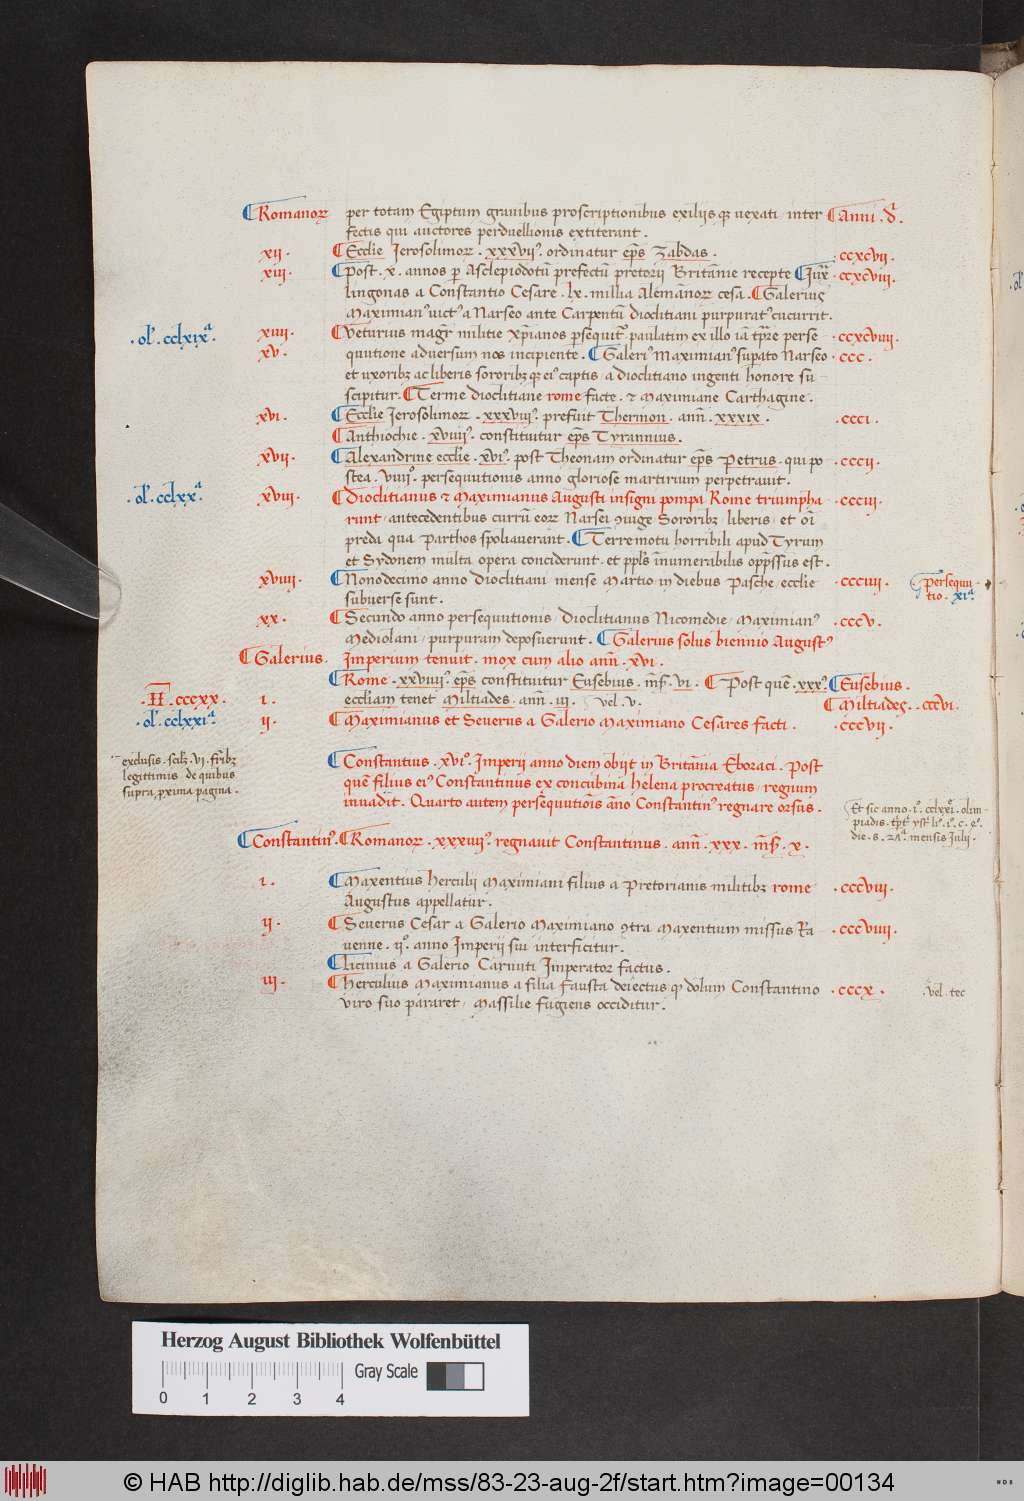 Romanoꝝ per totam Egiptum grauibus proscriptionibus exiliisqꝫ uexati inter Anni .d̄.
fectis qui auctores perduellionis extiterunt.
xii. Ecclie Ierosolimoꝝ. xxxvii°. ordinatur ep̄s Zabdas. ccxcvii.
xiii. Post. x. annos p̄ Asclepiodotū prefectū pretorii Britānie recepte ccxcviii.
lingonas a Constantio Cesare. lx. millia Alemānoꝝ cesa. Galerius
Maximianꝰ uictꝰ a Narseo ante Carpentū dioclitiani purpuratꝰ cucurrit.
.ol'. cclxixª. xiiii. Veturius magr̄ militie xp̄ianos ꝑsequit̄. paulatim ex illo iā tp̄re perse ccxcviiii.
xv. qutione aduersum nos incipiente. Galeriꝰ Maximianꝰ supato Narseo ccc.
et uxoribꝫ ac liberis sororibꝫqꝫ eiꝰ captis. a dioclitiano ingenti honore su
scipitur. Terme dioclitiane rome facte. ⁊ Maximiane Carthagine.
xvi. Ecclie Ierosolimoꝝ. xxxviii°. prefuit Thermon. ann̄. xxxix. ccci.
Anthiochie. xviiii°. constituitur ep̄s Tyrannius.
xvii. Alexandrine ecclie. xvi°. post Theonam ordinatur ep̄s Petrus. qui po cccii.
stea. viiii°. persequutionis anno gloriose martirium perpetrauit.
.ol'. cclxxª. xviii. Dioclitianus ⁊ Maximianus Augusti insigni pompa Rome triumpha ccciii.
runt, antecedentibus currū eoꝝ Narsei ꝯiuge Sororibꝫ, liberis, et oī
preda qua Parthos spoliauerant. Terremotu horribili apud Tyrum
et Sydonem multa opera conciderunt. et ppl's īnumerabilis opp̄ssus est.
xviiii. Nonodecimo anno Dioclitiani mense Martio in diebus Pasche, ecclie ccciiii. persequu-
subuerse sunt. tio. xiª.
xx. Secundo anno persequutionis, Dioclitianus Nicomedie, Maximianꝰ cccv.
Mediolani, purpuram deposuerunt. Galerius solus biennio Augustꝰ
Galerius. Imperium tenuit. mox cum alio ann̄. xvi.
Rome. xxviiii°. ep̄s constituitur Eusebius. m̄s. vi. Post quē. xxx°. Eusebius.
.H. cccxx. i. eccliam tenet Miltiades. ann̄. iii. vel. v. Miltiades. cccvi.
.ol'. cclxxiª. ii. Maximianus et Seuerus a Galerio Maximiano Cesares facti. cccvii.
exclusis. scilꝫ. vi. fr̄ibꝫ Constantius. xvi°. Imperii anno diem obiit in Britānia Eboraci. Post
legittimis de quibus quē filius eiꝰ Constantinus ex concubina helena procreatus, regnum
supra, proxima pagina. inuadit. Quarto autem persequutiōis āno Constantinꝰ regnare orsus.
Et sic anno. i°. cclxxi. olim-
piadis.
die. s. 24ª mensis Julii.
Constantinꝰ. Romanoꝝ. xxxvii°. regnauit Constantinus. ann̄. xxx. m̄s. x.
i. Maxentius herculii Maximiani filius a Pretorianis militibꝫ rome cccviii.
Augustus appellatur.
ii. Seuerus Cesar a Galerio Maximiano ꝯtra Maxentium missus Ra cccviiii.
uenne. ii°. anno Imperii sui interficitur.
licinius a Galerio Carnuti Imperator factus.
iii. Herculius Maximianus a filia Fausta deiectus qꝫ dolum Constantino cccx. vel. tec
viro suo pararet, Massilie fugiens occiditur.
Herzog August Bibliothek Wolfenbüttel
0 1 2 3 4 Gray Scale
© HAB http://diglib.hab.de/mss/83-23-aug-2f/start.htm?image=00134